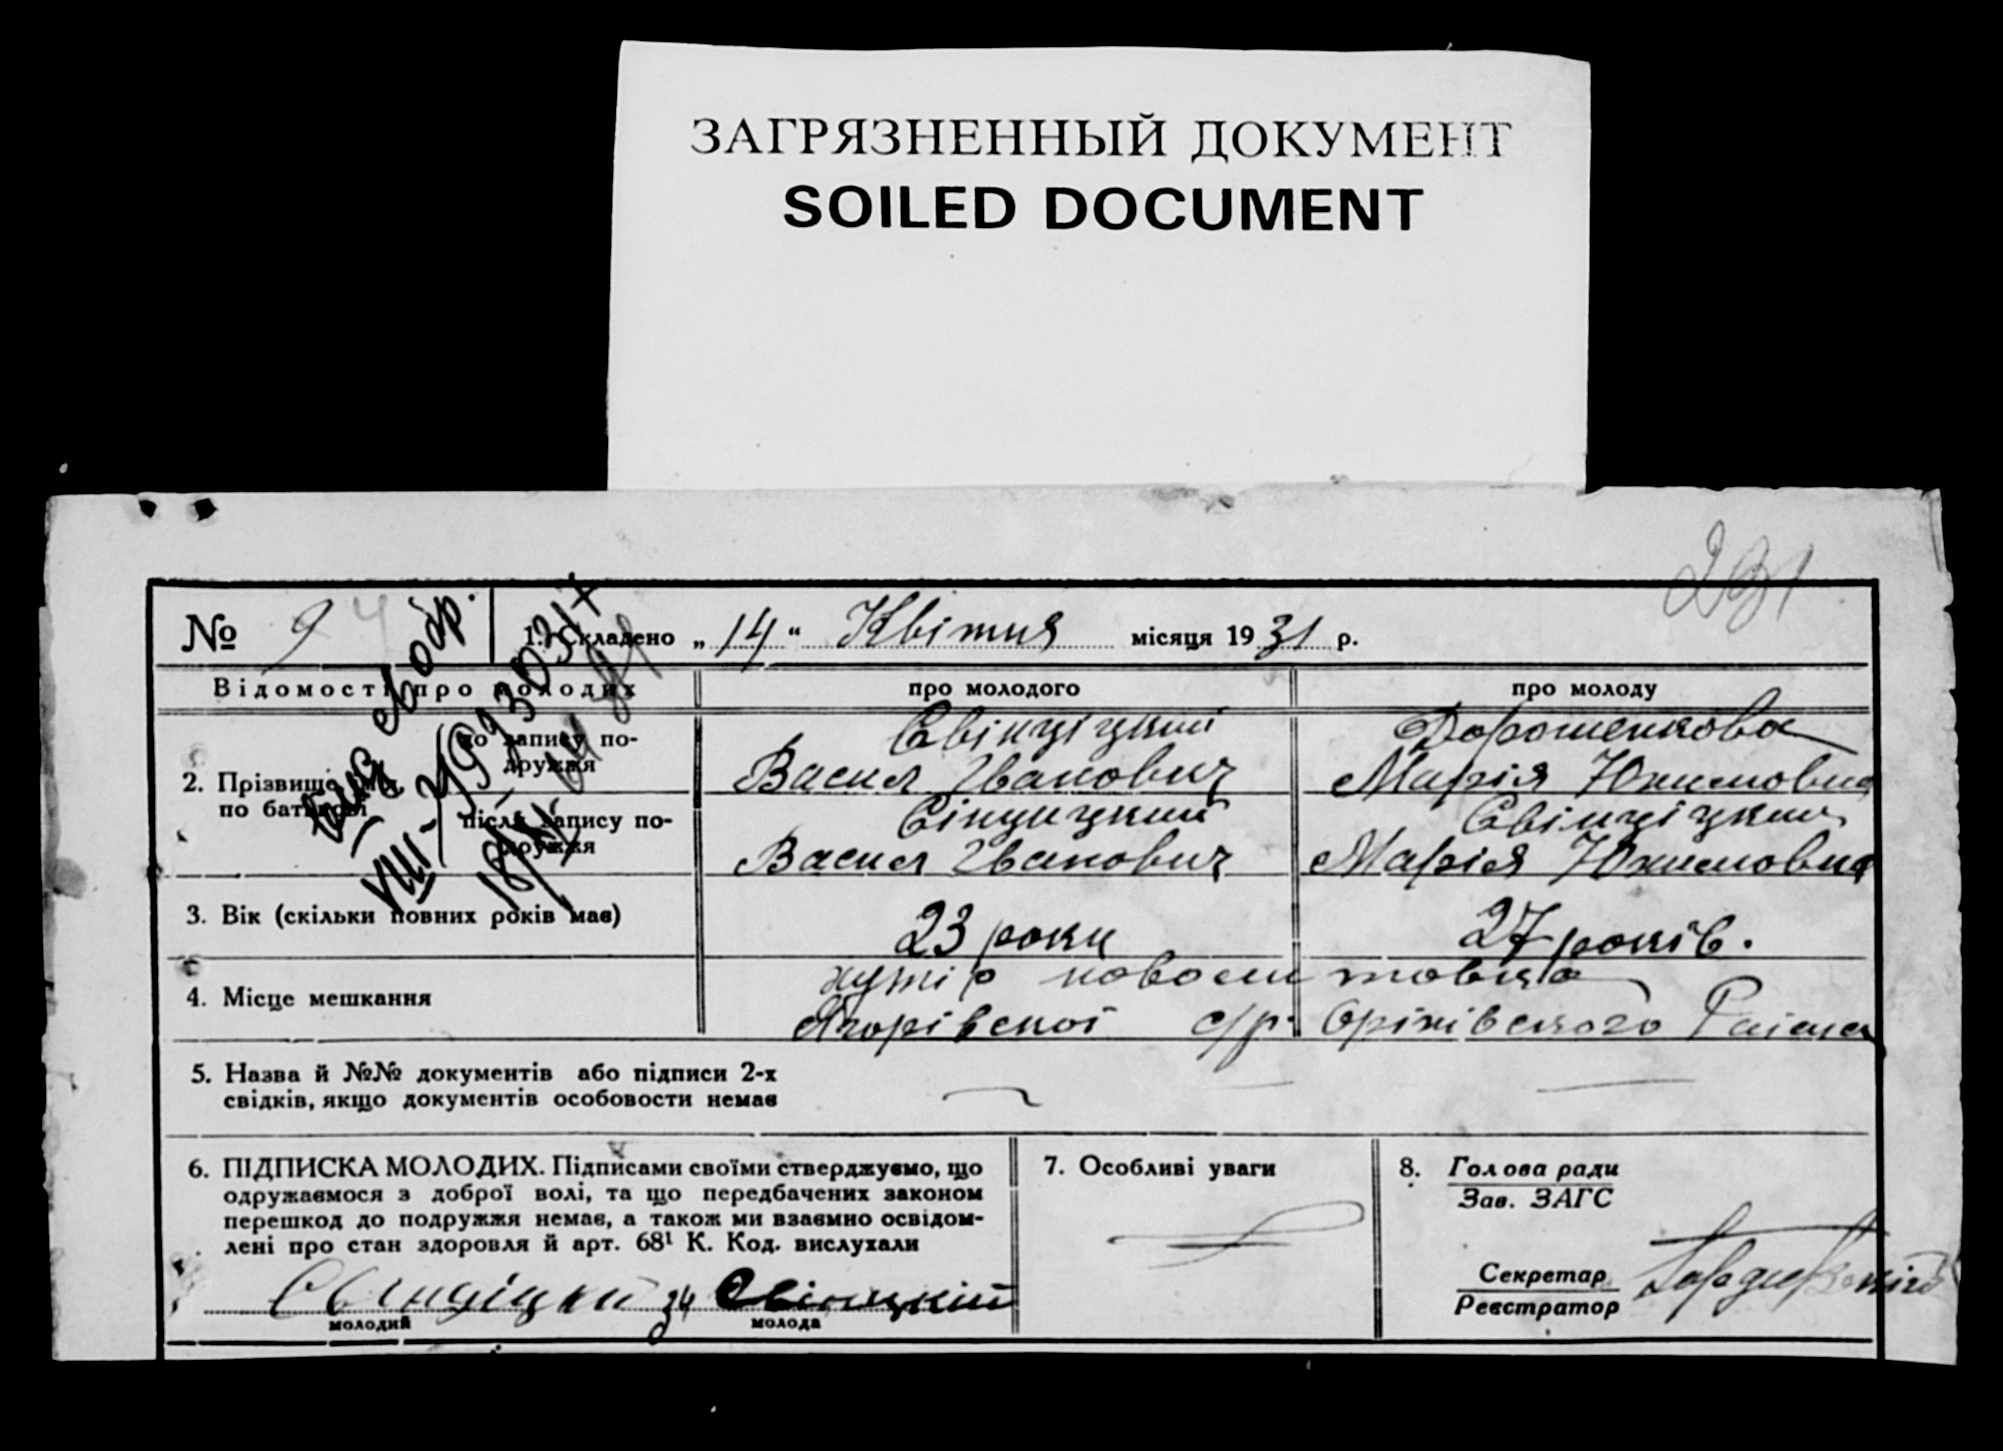 ЗАГРЯЗНЕННЫЙ ДОКУМЕНТ
SOILED DOCUMENT
231
№ 94
1. Складено „ 14 “ Квітня місяця 1931 р.
Відомості про молодих
про молодого
про молоду
2. Прізвище, ім'я, по батькові
до запису подружжя
Свінціцкий
Василь Іванович
Дорошенкова
Марія Юхимовна
після запису подружжя
Сінцицкий
Василь Іванович
Свінціцким
Марія Юхимовна
3. Вік (скільки повних років має)
23 роки
27 років.
4. Місце мешкання
хутір
Оріхівського Району
с/р.
5. Назва й №№ документів або підписи 2-х
свідків, якщо документів особовости немає
6. ПІДПИСКА МОЛОДИХ. Підписами своїми стверджуємо, що
одружаємося з доброї волі, та що передбачених законом
перешкод до подружжя немає, а також ми взаємно освідом-
лені про стан здоровля й арт. 68¹ К. Код. вислухали
Свінціцкий за Свінцкий
молодий
молода
7. Особливі уваги
8. Голова ради
Зав. ЗАГС
Секретар
Реєстратор